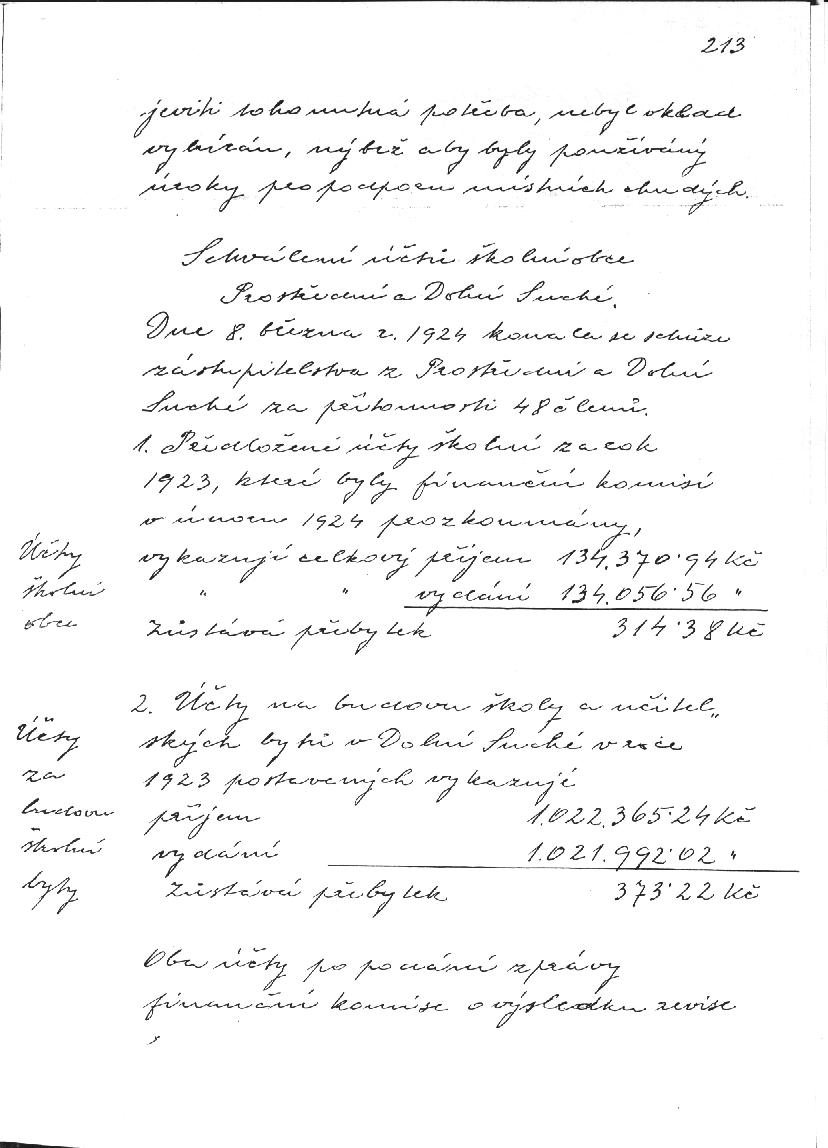 213
jeviti tohoutná potřeba, nebyl vklad
vybírán, nýbrž aby byly používány
úroky pro podporu místních chudých.
Schválení účtů školní obce
Prostřední a Dolní Suché.
Dne 8. března r. 1924 konala se schůze
zástupitelstva z Prostřední a Dolní
Suché za přítomnosti 48 členů.
1. Předložené účty školní za rok
1923, které byly finanční komisí
v únoru 1924 prozkoumány,
Účty vykazují celkový příjem 134.370·94 Kč
školní " " vydání 134.056·56 "
obce Zůstává přebytek 314·38 Kč
2. Účty na budovu školy a učitel„
Účty ských bytů v Dolní Suché v roce
za 1923 postavených vykazují
budovu příjem 1.022.365·24 Kč
školní vydání 1.021.992·02 "
byty Zůstává přebytek 373·22 Kč
Oba účty po podání zprávy
finanční komise o výsledku revise